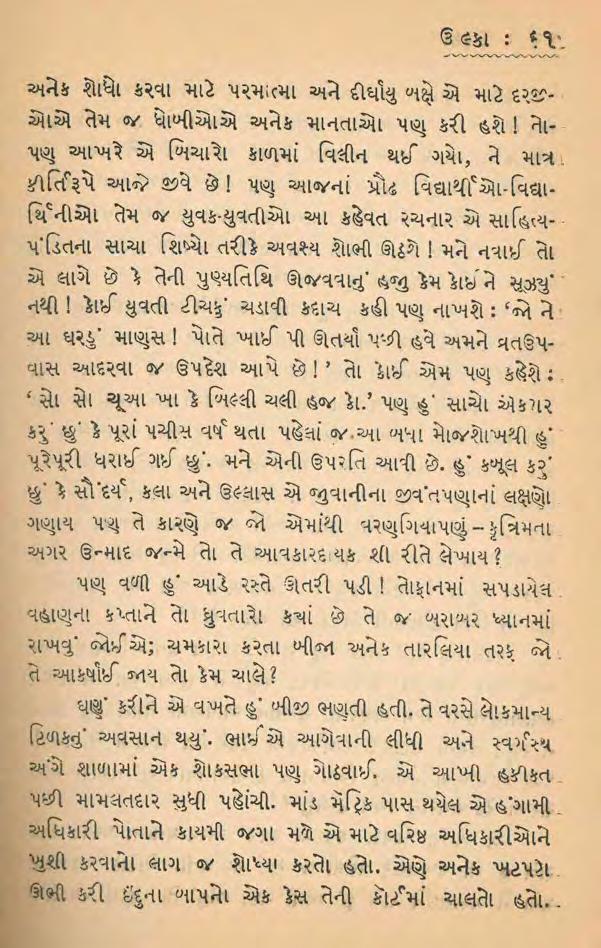 ઉલ્કા : ૬૧
અનેક શોધો કરવા માટે પરમાત્મા અને દીર્ઘાયુ બક્ષે એ માટે દરજી-
ઓએ તેમ જ ધોબીઓએ અનેક માનતાઓ પણ કરી હશે! તો-
પણ આખરે એ બિચારો કાળમાં વિલીન થઈ ગયો, ને માત્ર
કીર્તિરૂપે આજે જીવે છે! પણ આજનાં પ્રૌઢ વિદ્યાર્થીઓ-વિદ્યા-
ર્થિનીઓ તેમ જ યુવક-યુવતીઓ આ કહેવત રચનાર એ સાહિત્ય-
પંડિતના સાચા શિષ્યો તરીકે અવશ્ય શોભી ઊઠશે! મને નવાઈ તો
એ લાગે છે કે તેની પુણ્યતિથિ ઊજવવાનું હજુ કેમ કોઈને સૂઝ્યું
નથી! કોઈ યુવતી ટીચકું ચડાવી કદાચ કહી પણ નાખશે : ‘જો ને
આ ઘરડું માણસ! પોતે ખાઈ પી ઊતર્યાં પછી હવે અમને વ્રતઉપ-
વાસ આદરવા જ ઉપદેશ આપે છે!’ તો કોઈ એમ પણ કહેશે :
‘સો સો ચૂઆ ખા કે બિલ્લી ચલી હજ કો.’ પણ હું સાચો એકરાર
કરું છું કે પૂરાં પચીસ વર્ષ થતા પહેલાં જ આ બધા મોજશોખથી હું
પૂરેપૂરી ધરાઈ ગઈ છું. મને એની ઉપરતિ આવી છે. હું કબૂલ કરું
છું કે સૌંદર્ય, કલા અને ઉલ્લાસ એ જુવાનીના જીવંતપણાનાં લક્ષણો
ગણાય પણ તે કારણે જ જો એમાંથી વરણગિયાપણું – કૃત્રિમતા
અગર ઉન્માદ જન્મે તો તે આવકારદાયક શી રીતે લેખાય?
પણ વળી હું આડે રસ્તે ઊતરી પડી! તોફાનમાં સપડાયેલ
વહાણના કપ્તાને તો ધ્રુવતારો ક્યાં છે તે જ બરાબર ધ્યાનમાં
રાખવું જોઈએ; ચમકારા કરતા બીજા અનેક તારલિયા તરફ જો
તે આકર્ષાઈ જાય તો કેમ ચાલે?
ઘણું કરીને એ વખતે હું બીજી ભણતી હતી. તે વરસે લોકમાન્ય
ટિળકનું અવસાન થયું. ભાઈએ આગેવાની લીધી અને સ્વર્ગસ્થ
અંગે શાળામાં એક શોકસભા પણ ગોઠવાઈ. એ આખી હકીકત
પછી મામલતદાર સુધી પહોંચી. માંડ મૅટ્રિક પાસ થયેલ એ હંગામી
અધિકારી પોતાને કાયમી જગા મળે એ માટે વરિષ્ઠ અધિકારીઓને
ખુશી કરવાનો લાગ જ શોધ્યા કરતો હતો. એણે અનેક ખટપટો
ઊભી કરી ઇંદુના બાપનો એક કેસ તેની કૉર્ટમાં ચાલતો હતો.